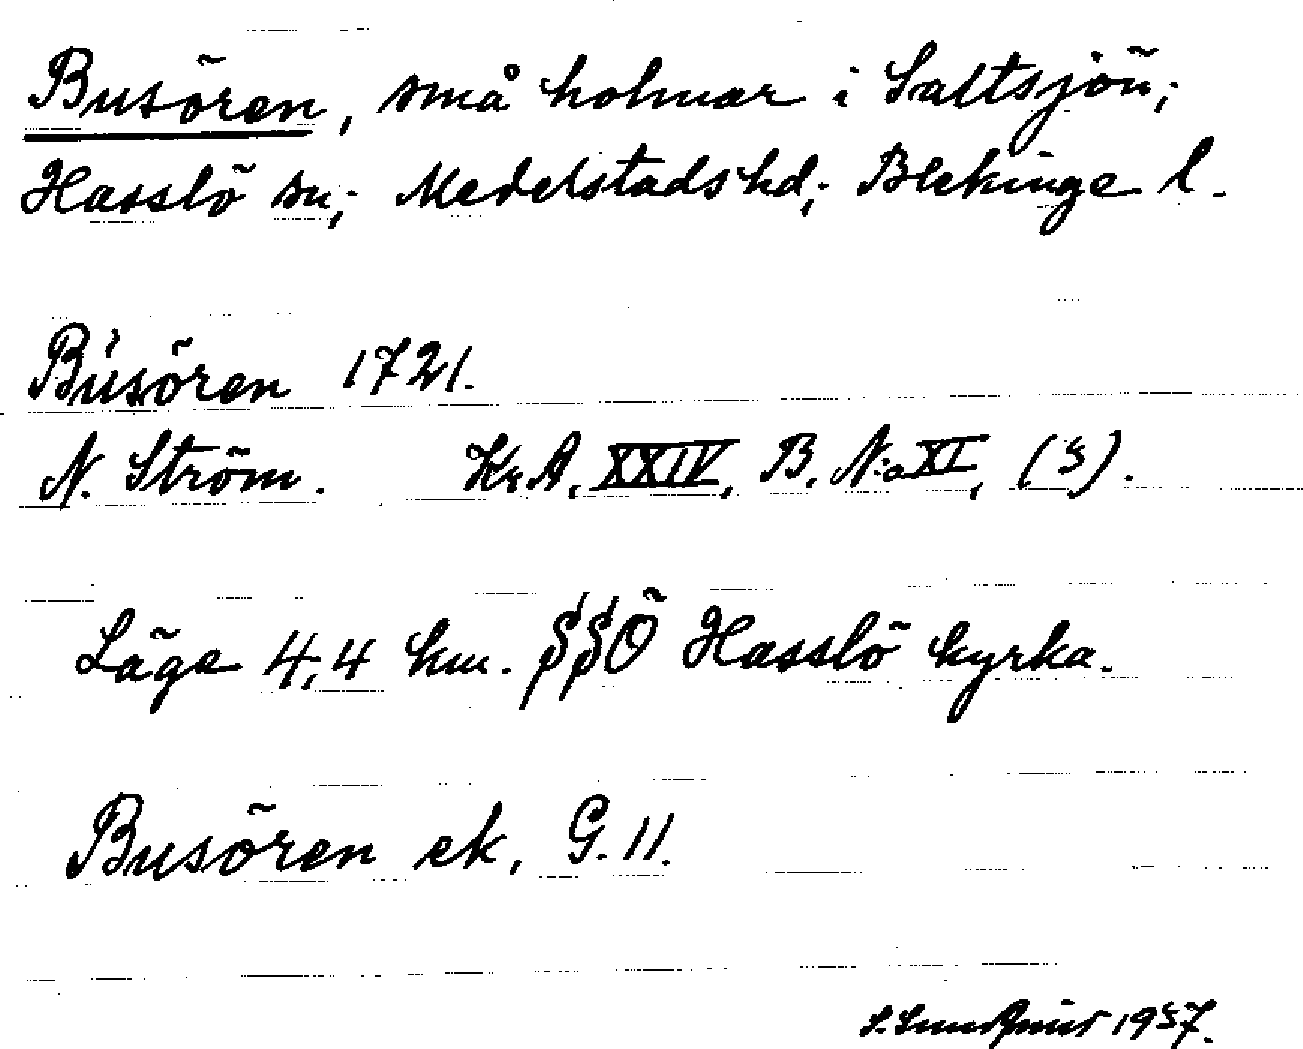 Busören, små holmar i Saltsjön;
Hasslö sn; Medelstads hd; Blekinge l.
Busören 1721.
N. Ström. Kr.A, XXIV, B. N:o XI, (5).
Läge 4,4 km. SSÖ Hasslö kyrka.
Busören ek, G. 11.
1957.